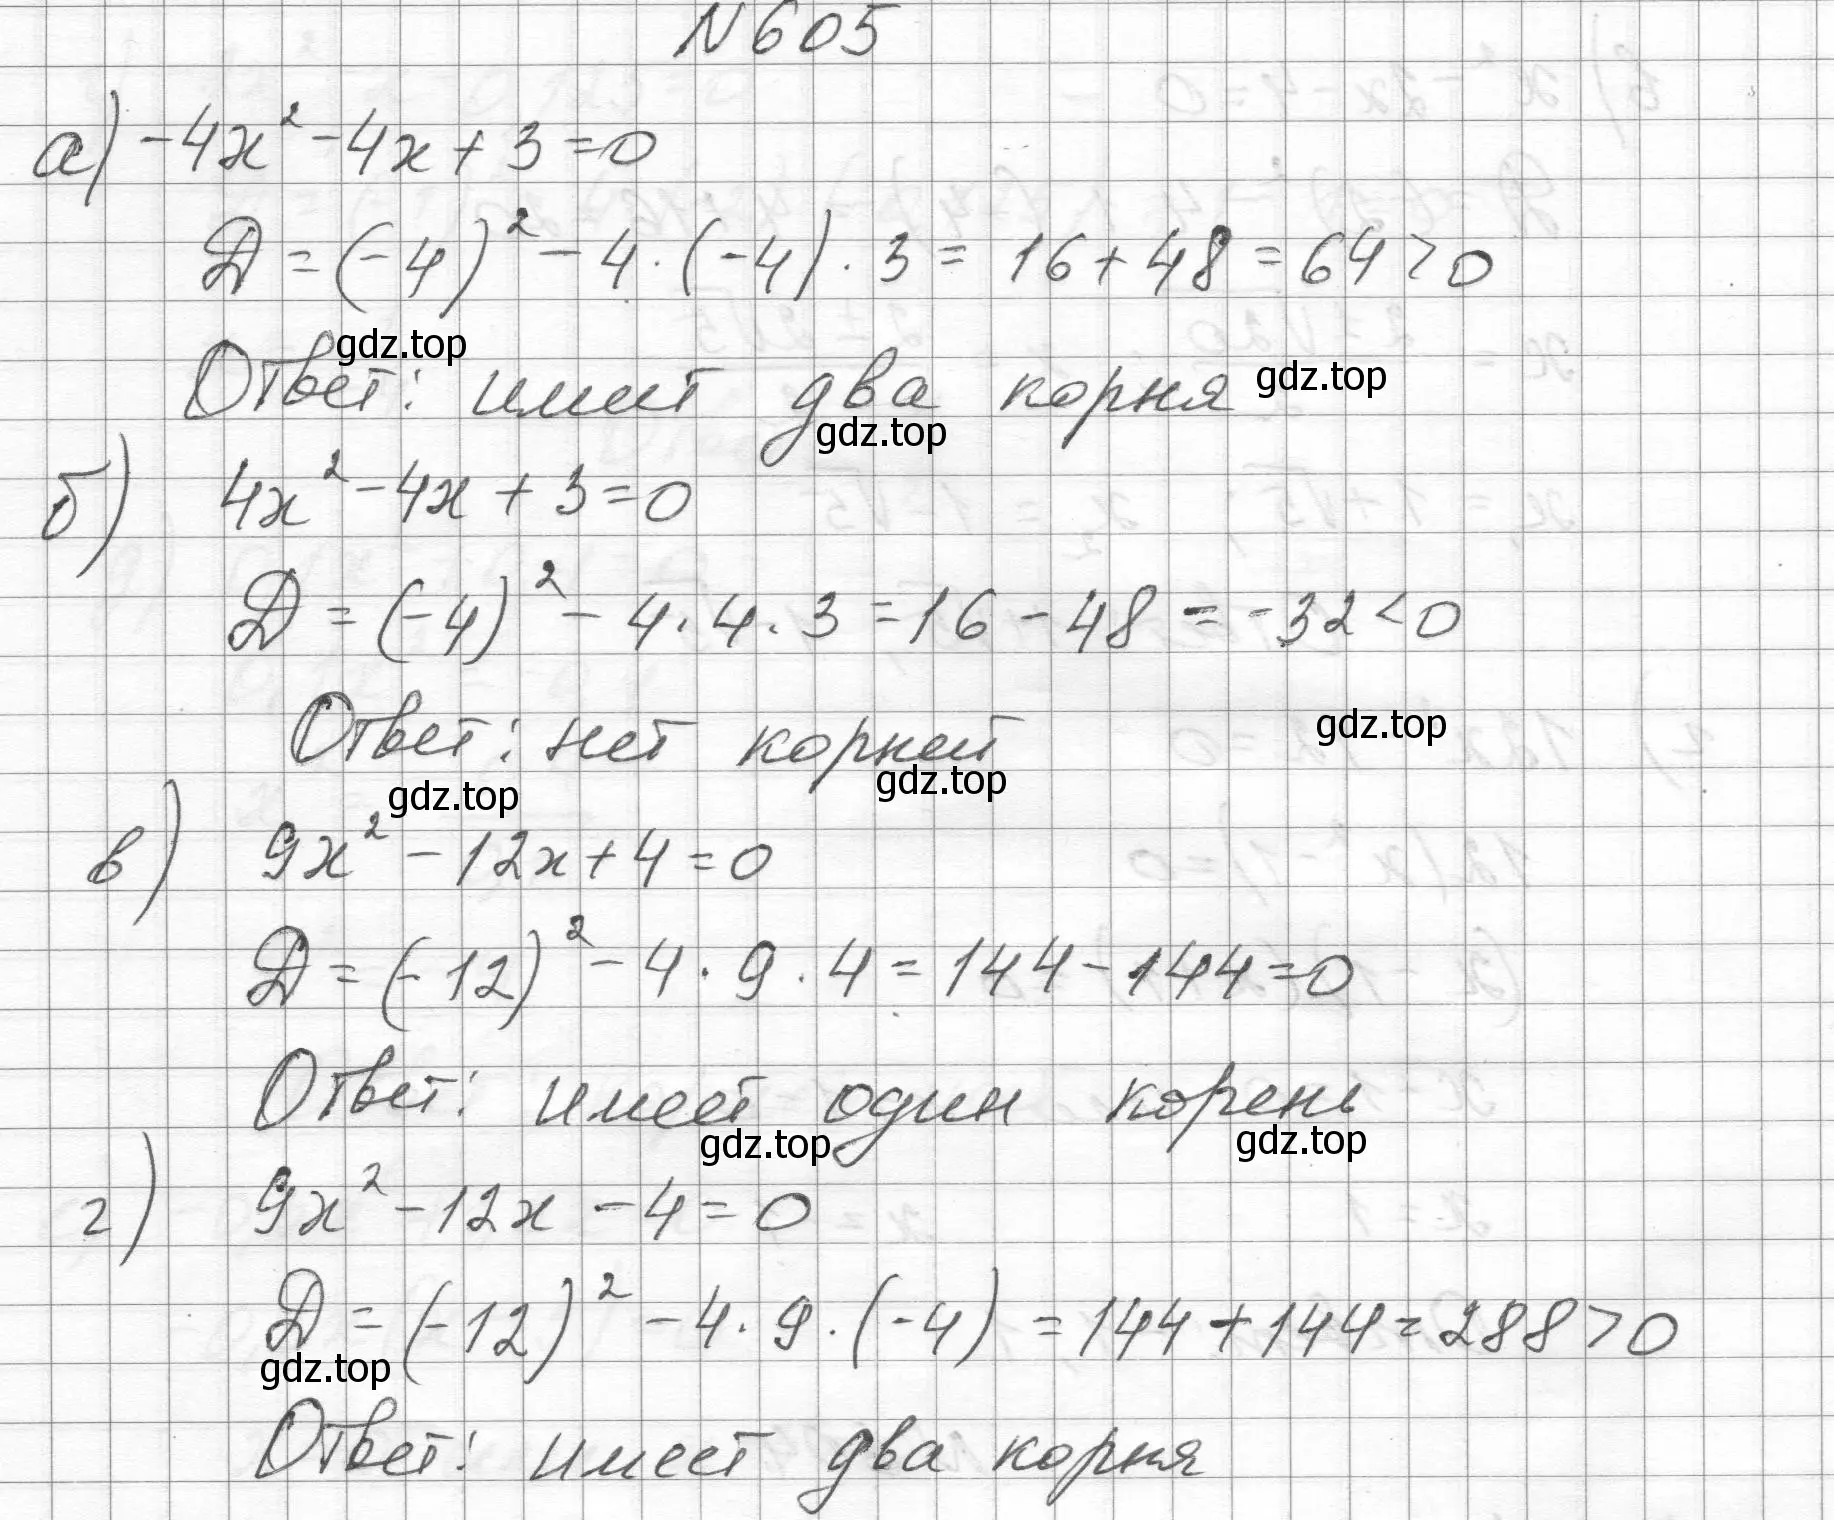 N605
а) -4x² - 4x + 3 = 0
D = (-4)² - 4 · (-4) · 3 = 16 + 48 = 64 > 0
gdz.top
Ответ: имеет два корня gdz.top
gdz.top
б) 4x² - 4x + 3 = 0
D = (-4)² - 4 · 4 · 3 = 16 - 48 = -32 < 0
Ответ: нет корней gdz.top
gdz.top gdz.top
в) 9x² - 12x + 4 = 0
D = (-12)² - 4 · 9 · 4 = 144 - 144 = 0
Ответ: имеет один корень
gdz.top gdz.top
г) 9x² - 12x - 4 = 0
D = (-12)² - 4 · 9 · (-4) = 144 + 144 = 288 > 0
gdz.top
Ответ: имеет два корня